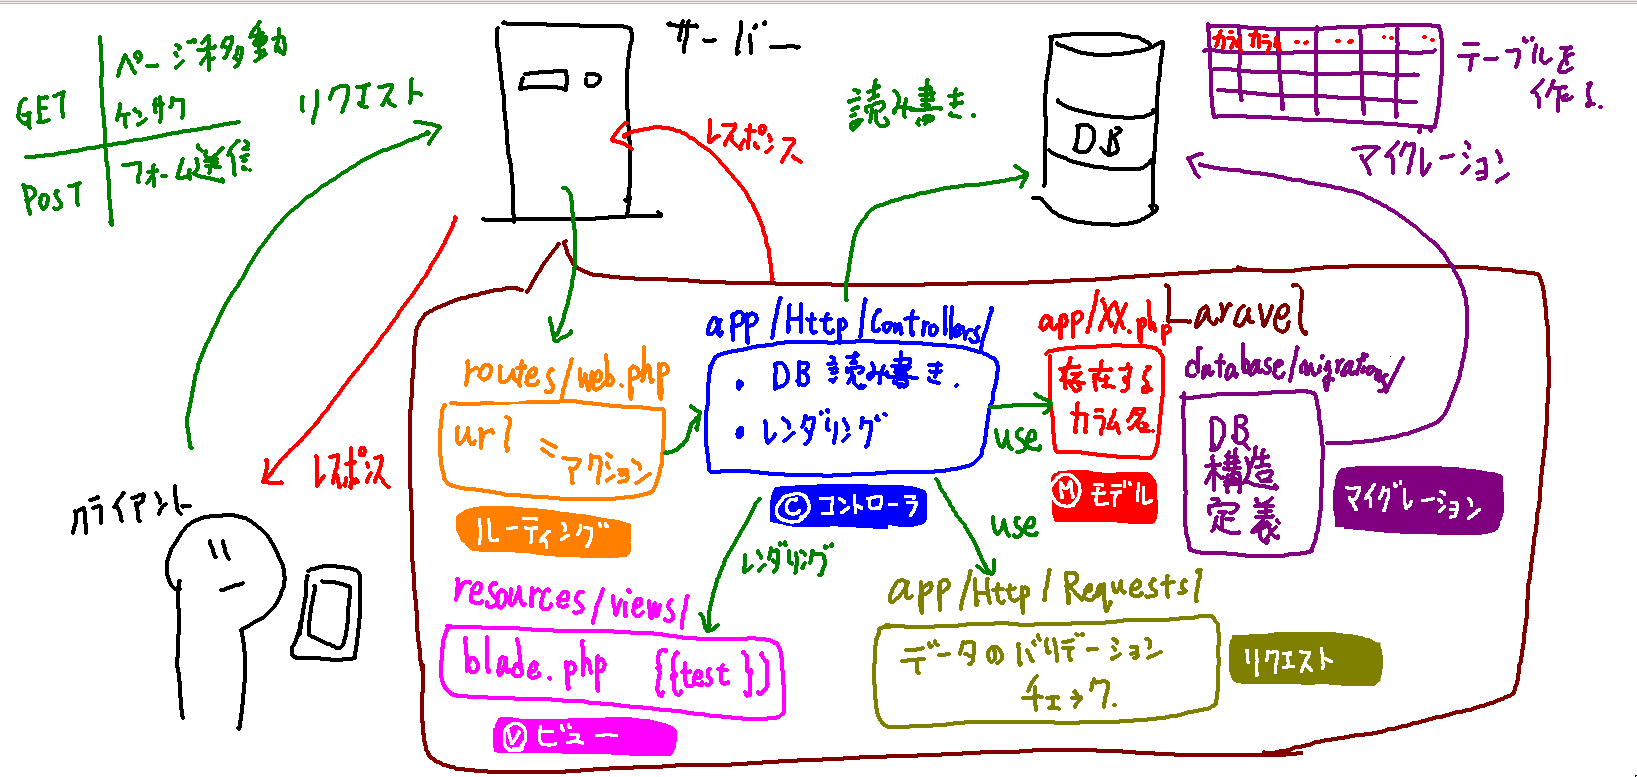 GET
ページ移動
ケンサク
POST
フォーム送信
リクエスト
サーバー
レスポンス
読み書き.
DB
カラム カラム .. .. .. ..
テーブルを
作る.
マイグレーション
クライアント
レスポンス
Laravel
routes/web.php
url = アクション
ルーティング
app/Http/Controllers/
・DB 読み書き.
・レンダリング
Ⓒ コントローラ
use
app/XX.php
存在する
カラム名.
Ⓜ モデル
database/migrations/
DB
構造
定義
マイグレーション
レンダリング
resources/views/
blade.php {{test}}
Ⓥ ビュー
use
app/Http/Requests/
データのバリデーション
チェック.
リクエスト